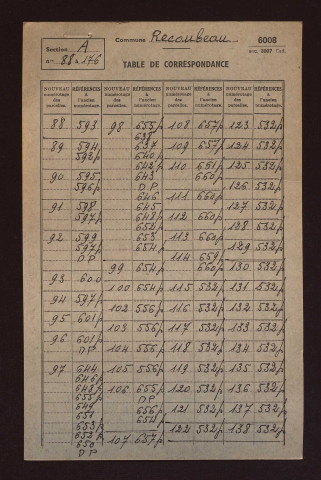 Commune Recoubeau
6008
anc. 3037 Cad.
Section A
nos 88 à 176
TABLE DE CORRESPONDANCE
NOUVEAU numérotage des parcelles.
RÉFÉRENCES à l'ancien numérotage
NOUVEAU numérotage des parcelles.
RÉFÉRENCES à l'ancien numérotage
NOUVEAU numérotage des parcelles.
RÉFÉRENCES à l'ancien numérotage
NOUVEAU numérotage des parcelles.
RÉFÉRENCES à l'ancien numérotage
88 593
89 594p
592p
90 595p
596p
91 598
597p
92 599
597p
DP
93 600
94 597p
95 601p
96 601p
DP
97 644
646p
648p
655p
647
651
653p
652p
650
DP
98 655p
638
637
640p
642p
643
DP
646
645
648p
652p
653
654p
99 654p
100 654p
102 556p
103 556p
104 556p
105 556p
106 655p
DP
656p
654p
107 657p
108 657p
109 657p
110 651p
660p
111 660p
112 660p
113 660p
114 659p
660p
115 532p
116 532p
117 532p
118 532p
119 532p
120 532p
121 532p
122 532p
123 532p
124 532p
125 532p
126 532p
127 532p
128 532p
129 532p
130 532p
131 532p
132 532p
133 532p
134 532p
135 532p
136 532p
137 532p
138 532p